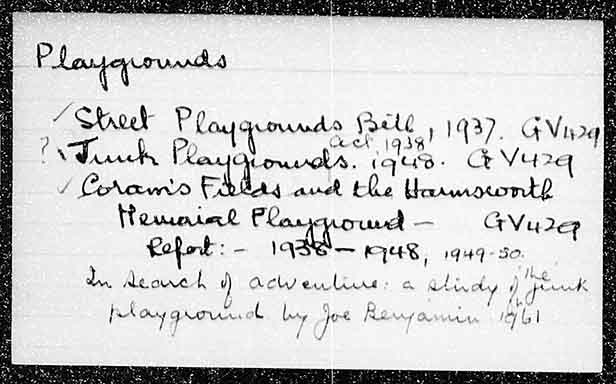 Playgrounds
✓ Street Playgrounds Bill, 1937. GV429
Act, 1938
? Junk Playgrounds. 1948. GV429
✓ Coram's Fields and the Harmsworth
Memorial Playground – GV429
Report: – 1938 – 1948, 1949-50.
In search of adventure: a study of the junk
playground by Joe Benjamin 1961